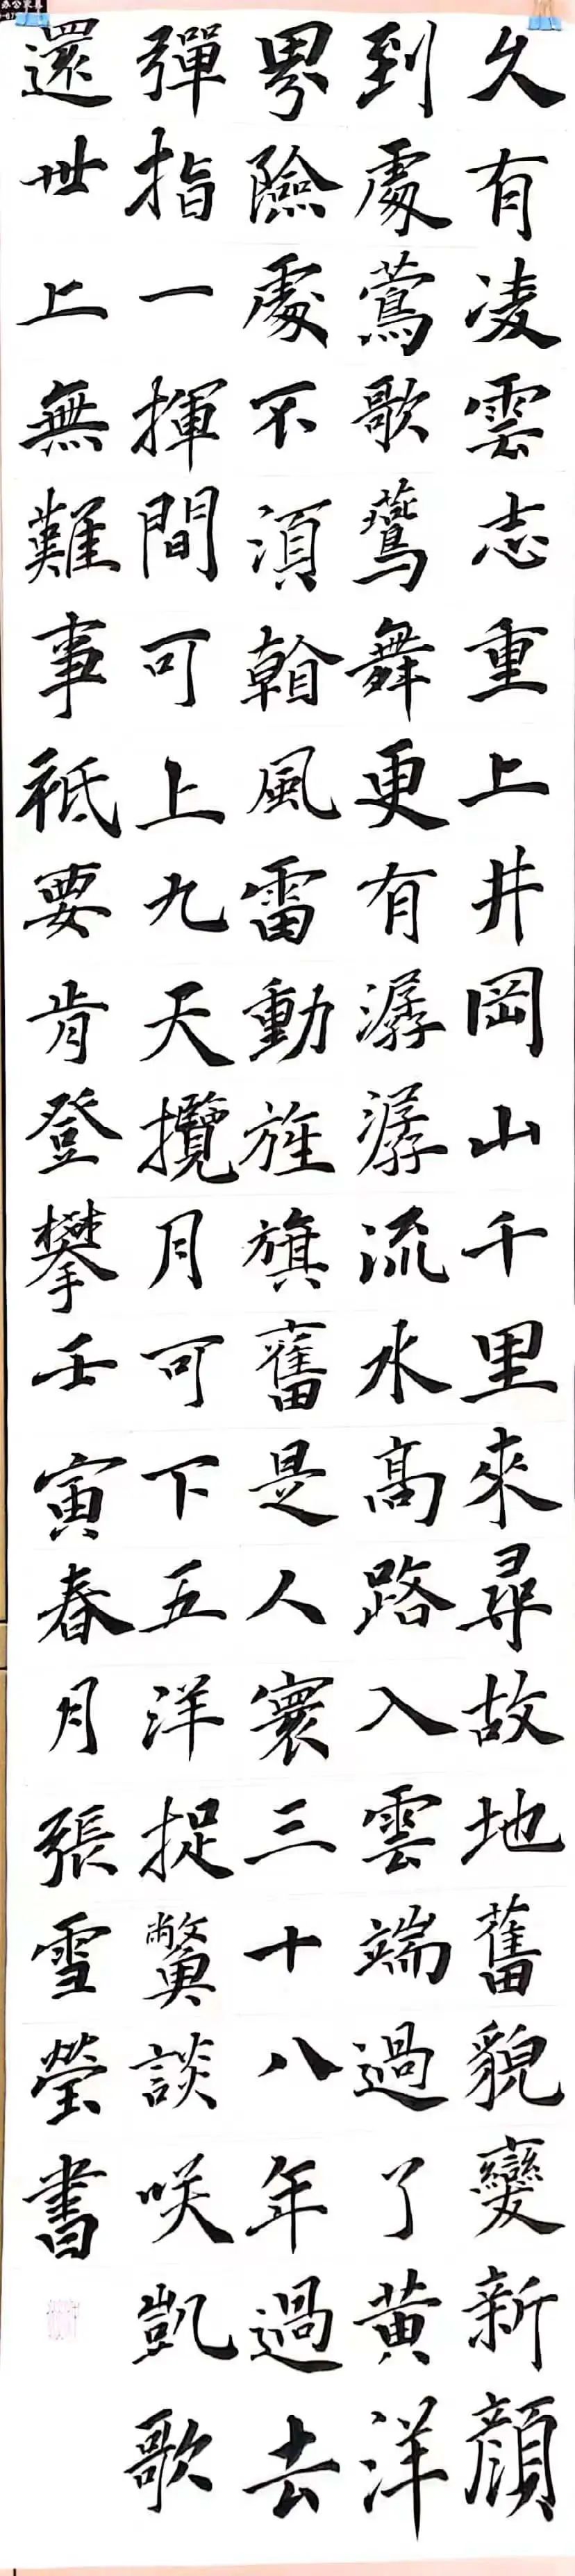 久有凌雲志重上井岡山千里來尋故地舊貌變新顔
到處鶯歌鷰舞更有潺潺流水高路入雲端過了黄洋
界險處不須看風雷動旌旗舊是人寰三十八年過去
彈指一揮間可上九天攬月可下五洋捉鱉談咲凱歌
還世上無難事祇要肯登攀壬寅春月張雪瑩書